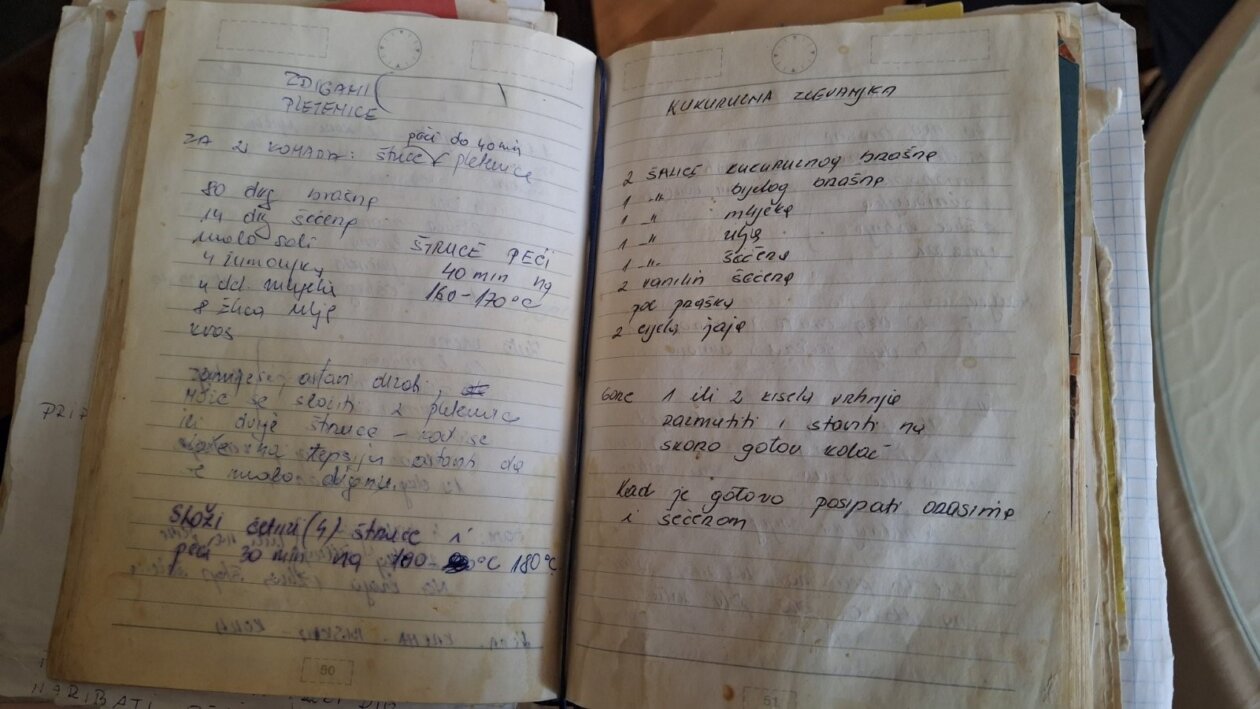 ZDIGAMI (
PLETENICE
)
peći do 40 min
ZA 2 KOMADA: štruce pletenice
80 dkg brašna
14 dkg šećera
malo soli
4 žumanjka
4 dcl mlijeka
8 žlica ulja
kvas
ŠTRUCE PEĆI
40 MIN na
160-170°C
zamijesi, ostavi dizati,
Može se složiti 2 pletenice
ili dvije štruce - kad se
na tepsiju ostaviti da
se malo dignu.
Složi četiri (4) štruce i
peći 30 min na 180°C
60
KUKURUZNA ZLEVANJKA
2 ŠALICE kukuruznog brašna
1 -"- bijelog brašna
1 -"- mlijeka
1 -"- ulja
1 -"- šećera
2 vanilin šećera
pol praška
2 cijela jaja
Gore 1 ili 2 kisela vrhnja
razmutiti i staviti na
skoro gotov kolač
Kad je gotovo posipati orasima
i šećerom
61
NARIBATI